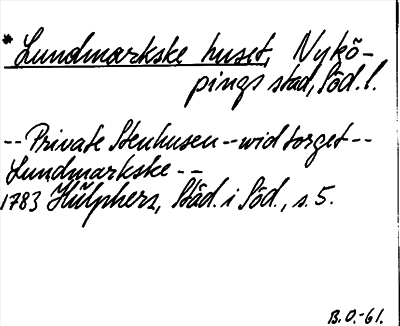 * Lundmarkske huset, Nykö-
pings stad, Söd. l.
-- Private Stenhusen -- wid torget --
Lundmarkske --
1783 Hülphers, Städ. i Söd., s. 5.
B.O.-61.